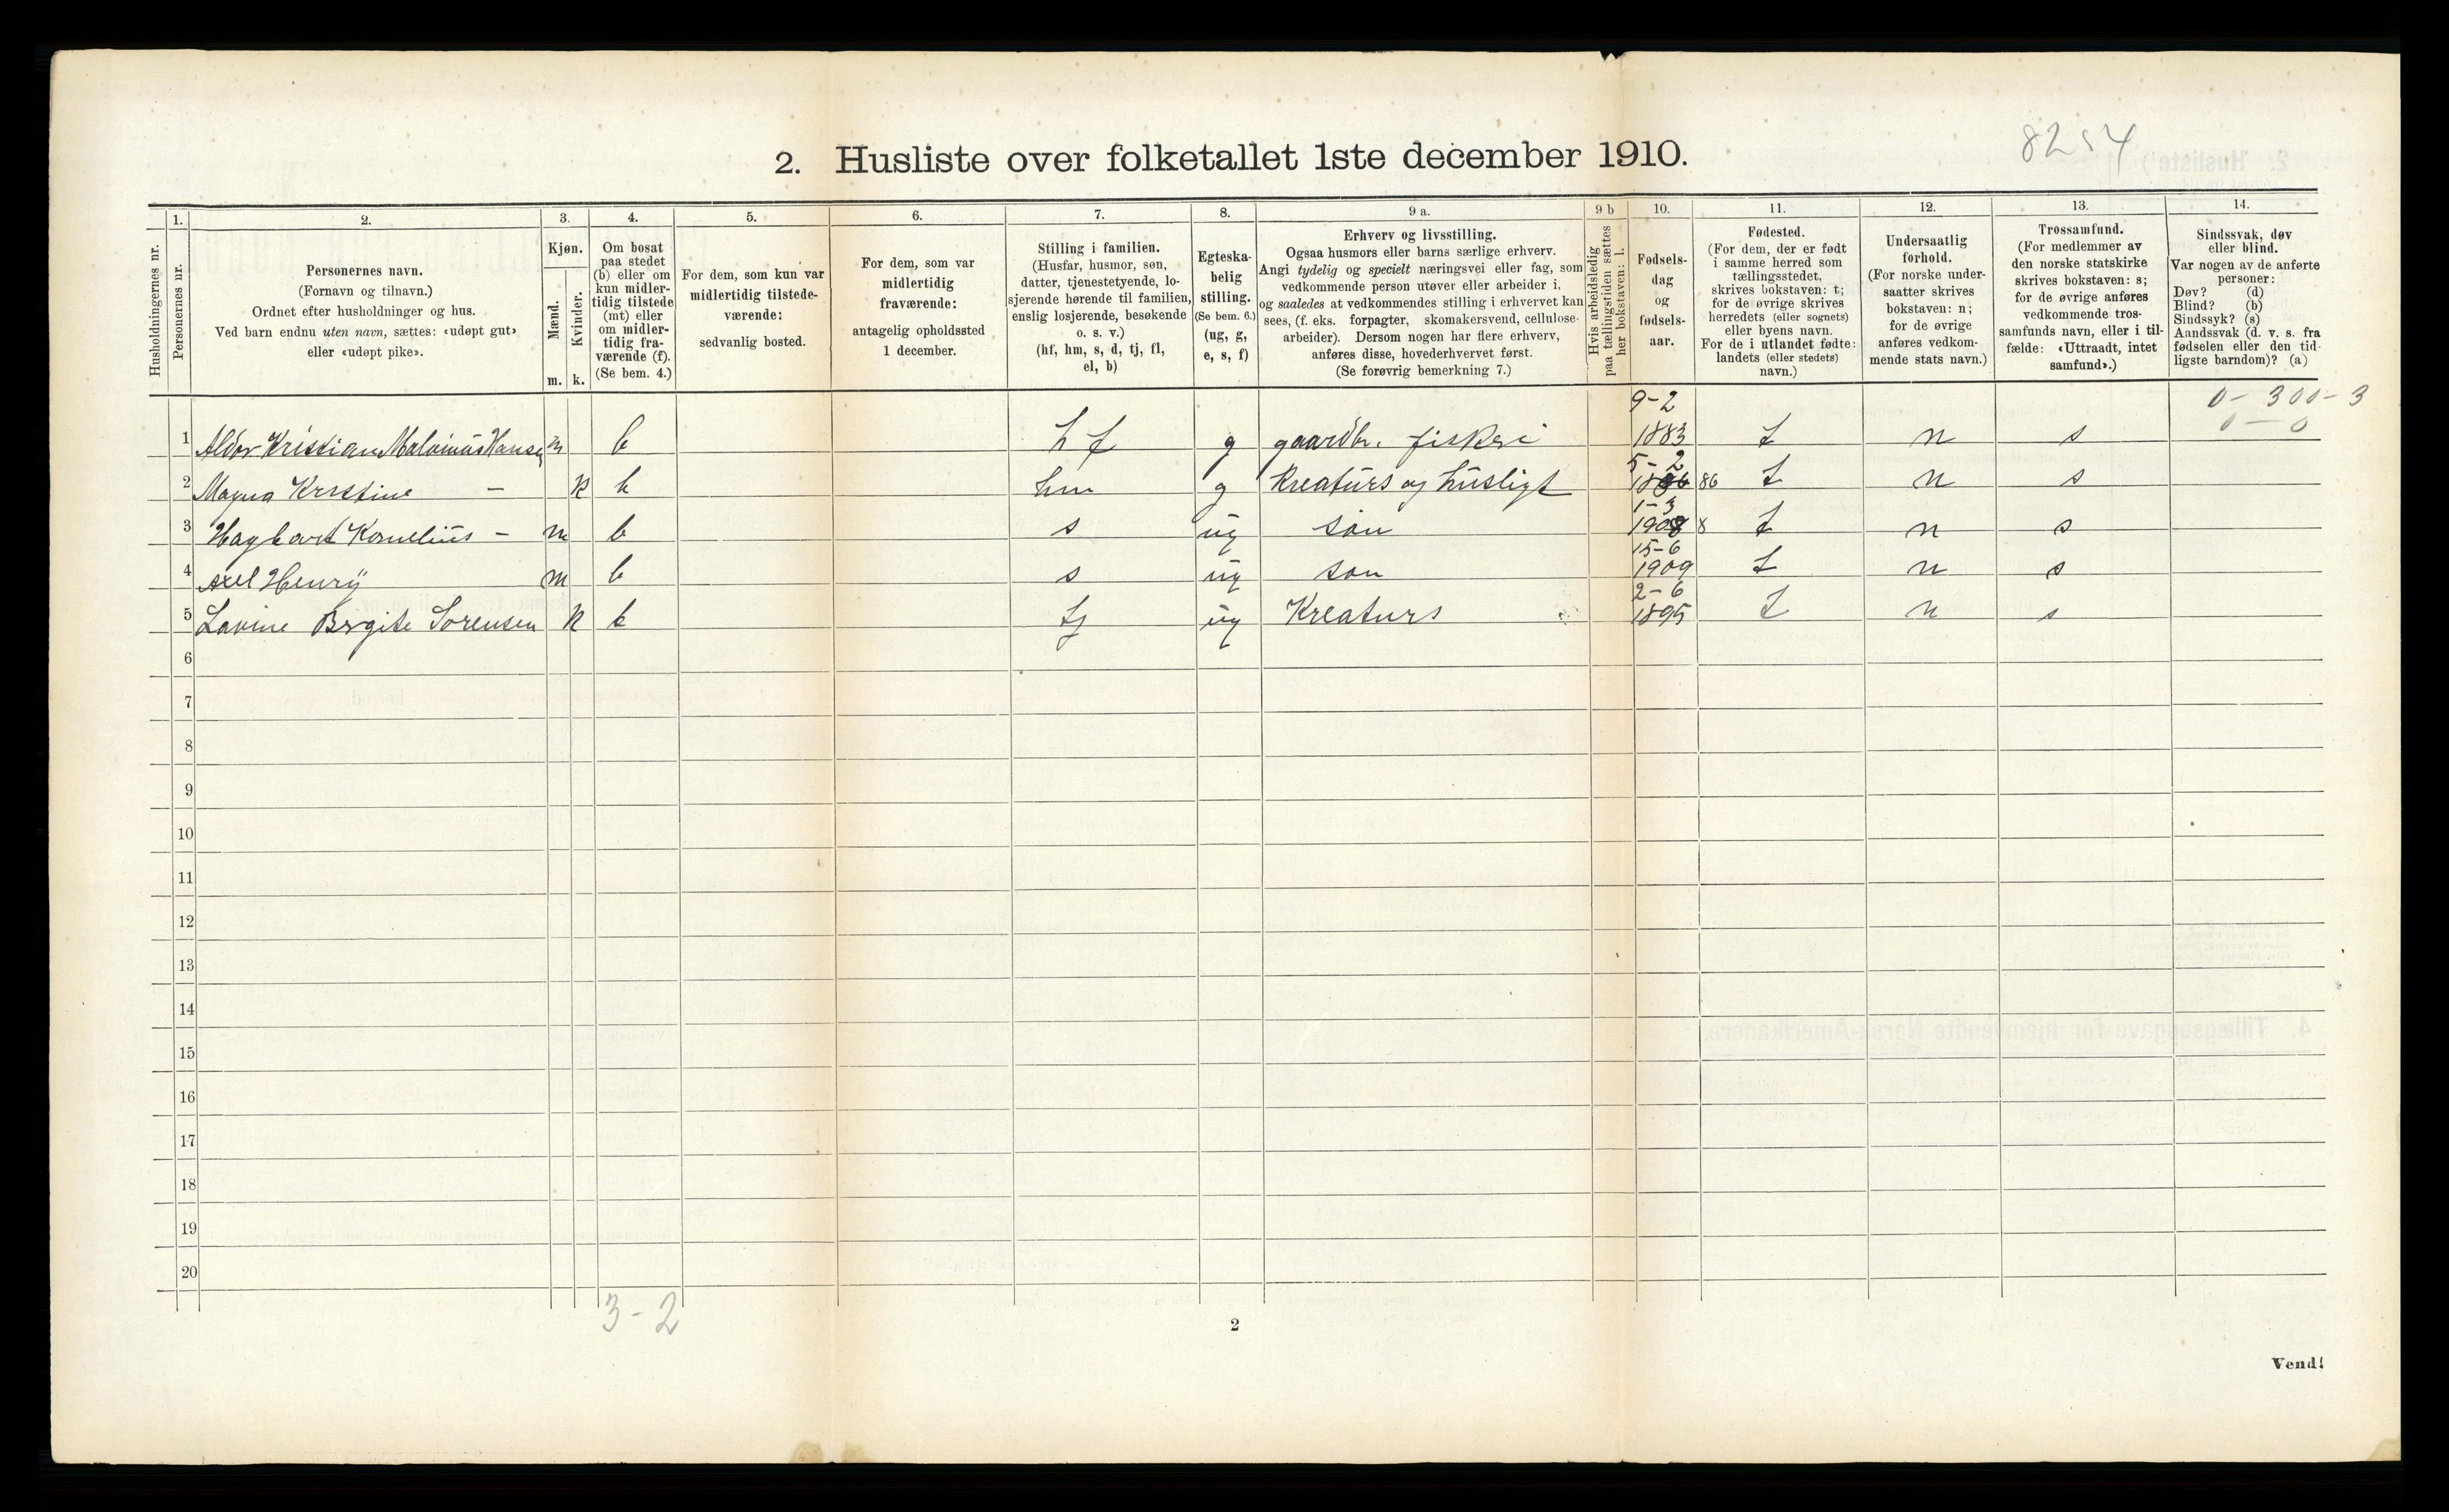 8254
2. Husliste over folketallet 1ste december 1910.
Husholdningernes nr.
1.
Personernes nr.
2.
Personernes navn.
(Fornavn og tilnavn.)
Ordnet efter husholdninger og hus.
Ved barn endnu uten navn, sættes: «udøpt gut»
eller «udøpt pike».
3.
Kjøn.
Mænd.
Kvinder.
m. k.
4.
Om bosat
paa stedet
(b) eller om
kun midler-
tidig tilstede
(mt) eller
om midler-
tidig fra-
værende (f).
(Se bem. 4.)
5.
For dem, som kun var
midlertidig tilstede-
værende:
sedvanlig bosted.
6.
For dem, som var
midlertidig
fraværende:
antagelig opholdssted
1 december.
7.
Stilling i familien.
(Husfar, husmor, søn,
datter, tjenestetyende, lo-
sjerende hørende til familien,
enslig losjerende, besøkende
o. s. v.)
(hf, hm, s, d, tj, fl,
el, b)
8.
Egteska-
belig
stilling.
(Se bem. 6.)
(ug, g,
e, s, f)
9 a.
Erhverv og livsstilling.
Ogsaa husmors eller barns særlige erhverv.
Angi tydelig og specielt næringsvei eller fag, som
vedkommende person utøver eller arbeider i,
og saaledes at vedkommendes stilling i erhvervet kan
sees, (f. eks. forpagter, skomakersvend, cellulose-
arbeider). Dersom nogen har flere erhverv,
anføres disse, hovederhvervet først.
(Se forøvrig bemerkning 7.)
9 b
Hvis arbeidsledig
paa tællingstiden sættes
her bokstaven: l.
10.
Fødsels-
dag
og
fødsels-
aar.
11.
Fødested.
(For dem, der er født
i samme herred som
tællingsstedet,
skrives bokstaven: t;
for de øvrige skrives
herredets (eller sognets)
eller byens navn.
For de i utlandet fødte:
landets (eller stedets)
navn.)
12.
Undersaatlig
forhold.
(For norske under-
saatter skrives
bokstaven: n;
for de øvrige
anføres vedkom-
mende stats navn.)
13.
Trossamfund.
(For medlemmer av
den norske statskirke
skrives bokstaven: s;
for de øvrige anføres
vedkommende tros-
samfunds navn, eller i til-
fælde: «Uttraadt, intet
samfund».)
14.
Sindssvak, døv
eller blind.
Var nogen av de anførte
personer:
Døv? (d)
Blind? (b)
Sindssyk? (s)
Aandssvak (d. v. s. fra
fødselen eller den tid-
ligste barndom)? (a)
0 - 300 - 3
0 - 0
1 Aldor Kristian Malvinus Hansen m b hf g gaardbr. fiskeri 9-2 1883 t n s
2 Magna Kristine - k b hm g Kreaturs og husligt 5-2 1886 86 t n s
3 Hagbart Kornelius - m b s ug søn 1-3 1908 8 t n s
4 Axel Henry m b s ug søn 15-6 1909 t n s
5 Lavine Brgite Sorensen k b tj ug Kreaturs 2-6 1895 t n s
6
7
8
9
10
11
12
13
14
15
16
17
18
19
20
3 - 2
2
Vend!